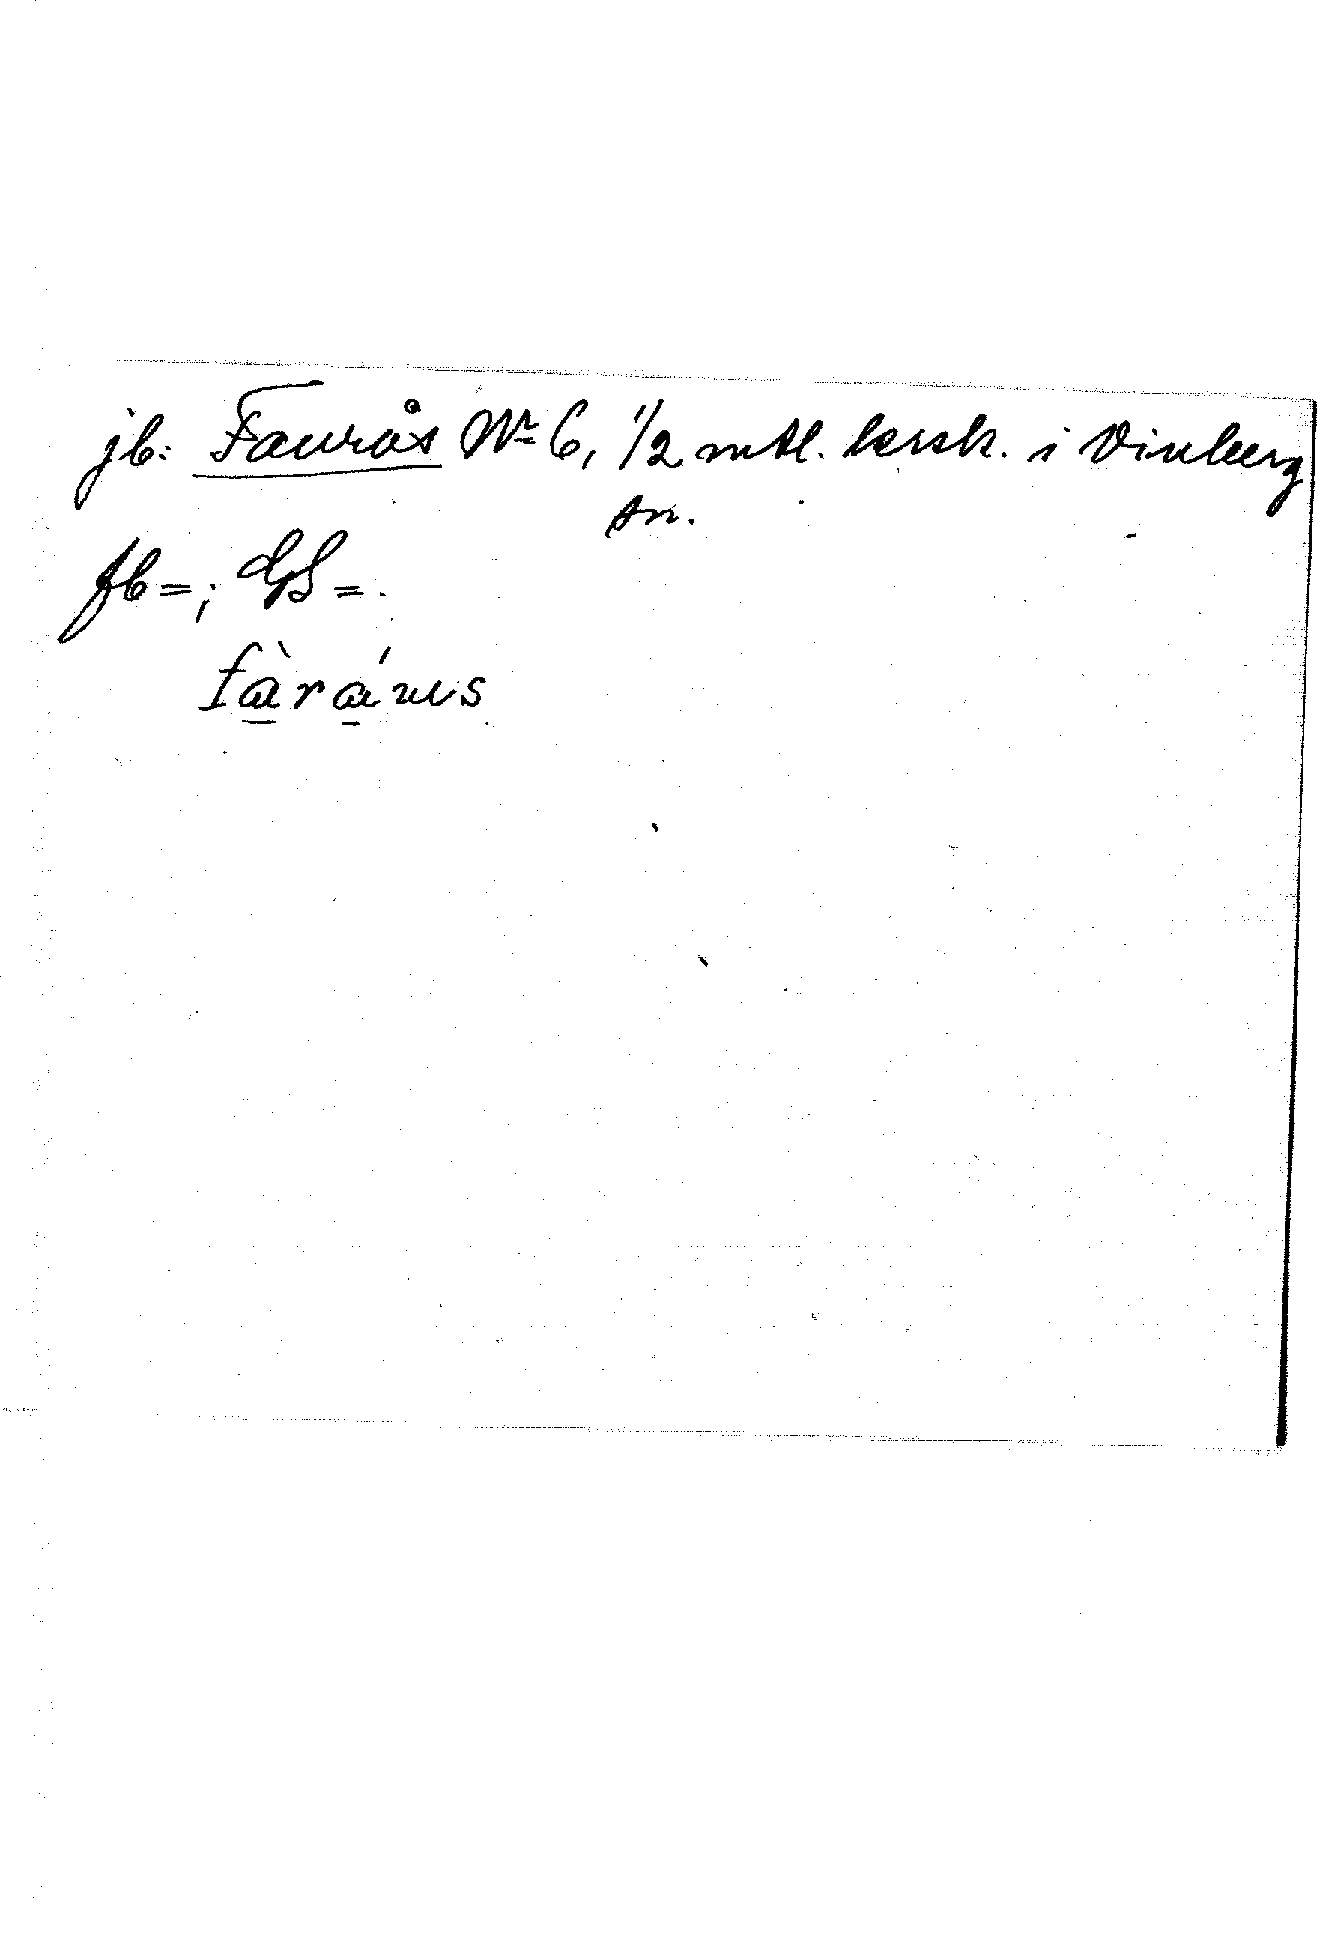 jb: Faurås Nr 6, 1/2 mtl. krsk. i Vinberg
sn.
fb=; GS=.
fàráus